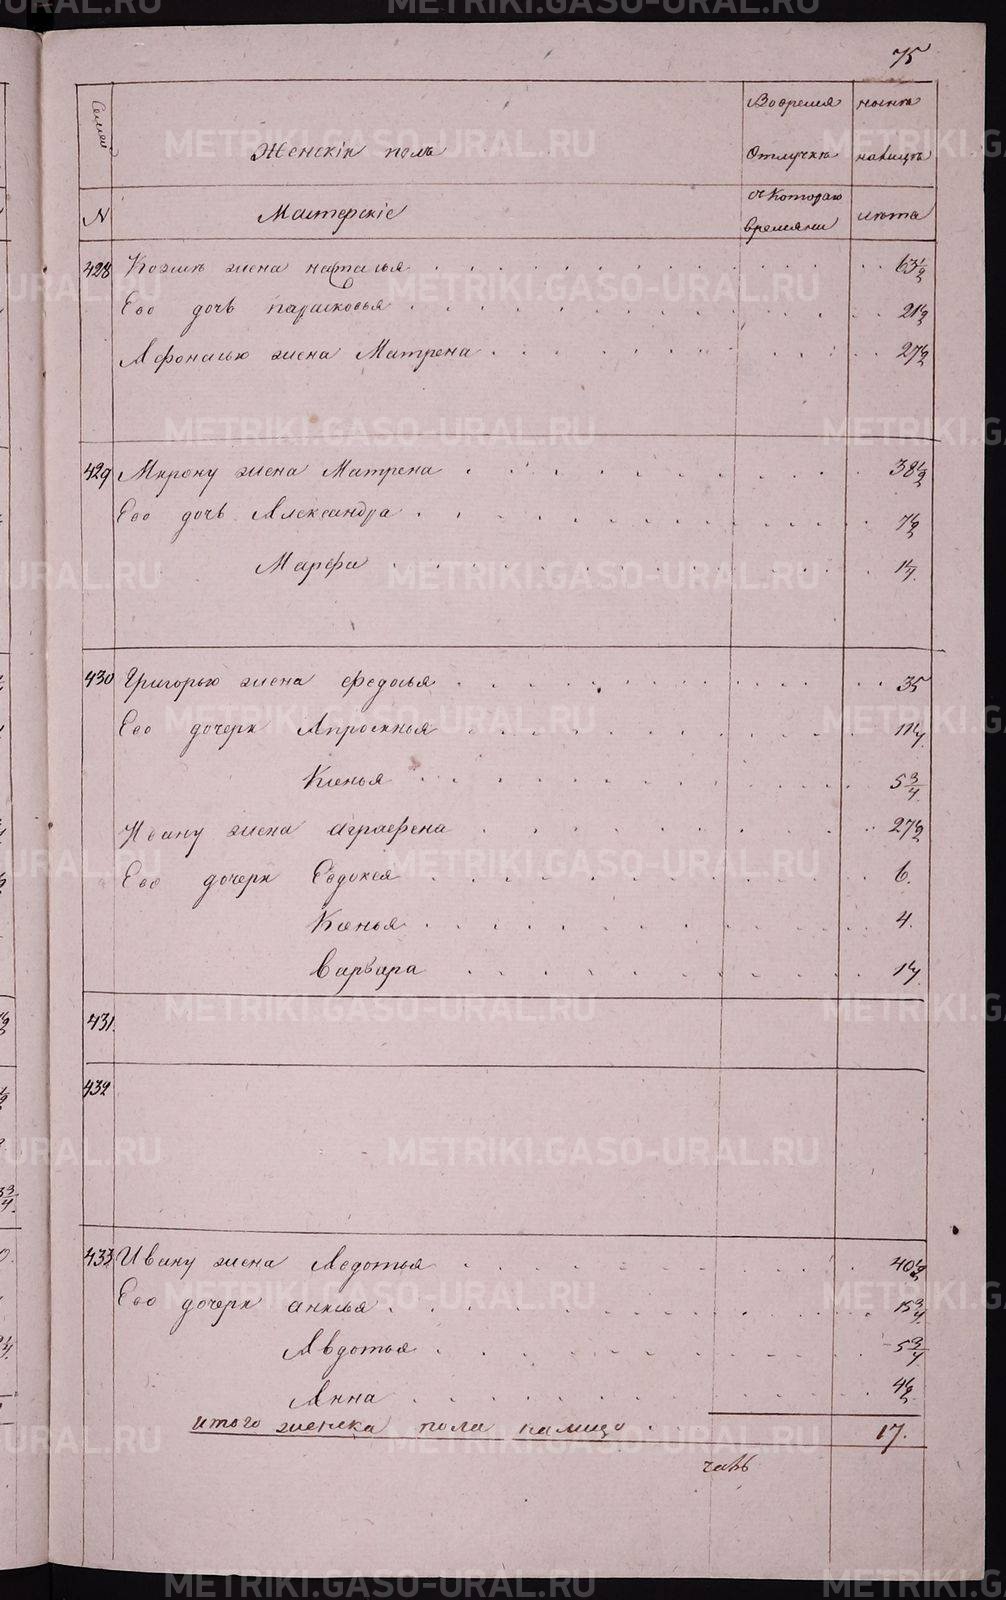 75
Семей Женскiй полъ Вовремя ныне
Отлучке налицъ
N Мастерскiе съ Котораго времяни лѣта
428 Козмѣ жена наталья 63½
Ево дочь парасковья 21½
Афонасью жена Матрена 27½
429 Мирону жена Матрена 38½
Ево дочь Александра 7½
Марфа 1¼
430 Григорью жена федосья 35
Ево дочери Апросинья 11¼
Ксенья 5¾
Ивану жена аграфена 27½
Ево дочери Евдокея 6.
Ксенья 4.
варвара 1¼
431.
432
433 Ивану жена Авдотья 40½
Ево дочери анисья 15¾
Авдотья 5¾
Анна 4½
итого женска пола налицо 17.
METRIKI.GASO-URAL.RU